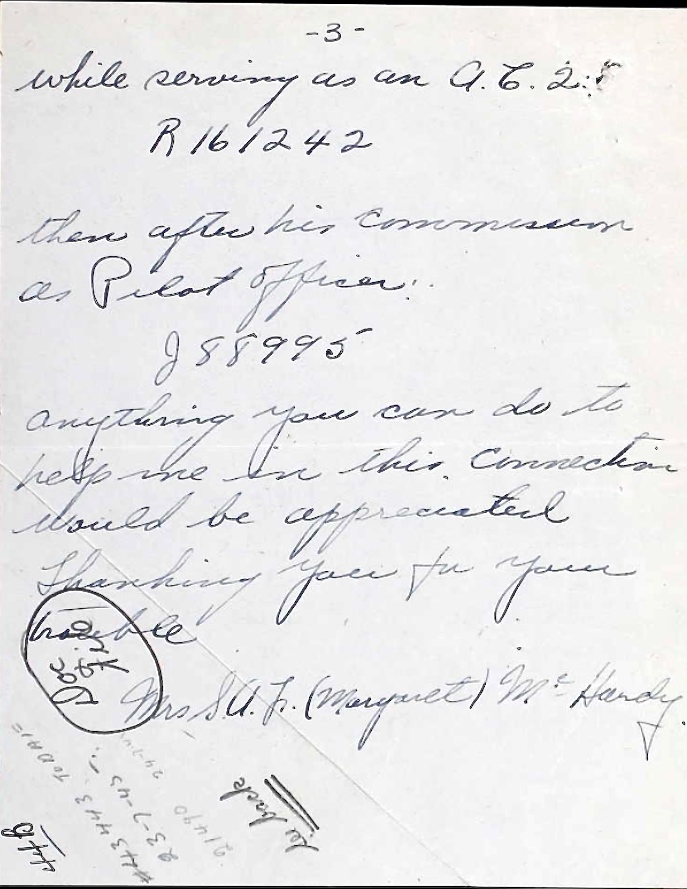 -3-
while serving as an A.C.2:
R161242
then after his commission
as Pilot Officer:
J88995
anything you can do to
help me in this connection
would be appreciated
Thanking you for your
trouble
Mrs S.A. (Margaret) McHardy
Doc
File
see back
21490
23-7-43
44D